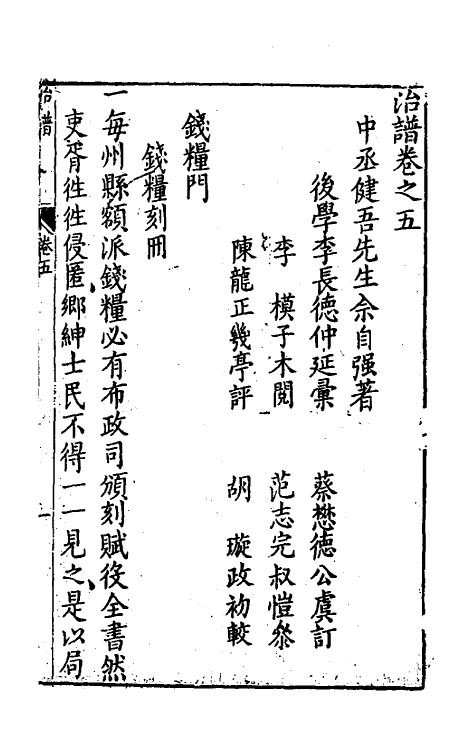 治譜卷之五
中丞健吾先生佘自强著
後學李長德仲延彙 蔡懋德公虞訂
李 模子木閱 范志完叔愷叅
陳龍正幾亭評 胡 璇政初較
錢糧門
錢糧刻冊
一每州縣額派錢糧必有布政司頒刻賦役全書然
吏胥徃徃侵匿鄉紳士民不得一一見之是以局
治譜
卷五
一